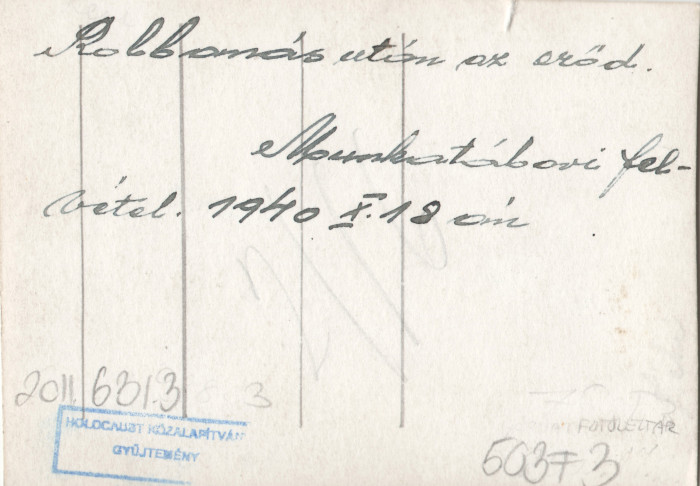 Robbanás után az erőd.
Munkatábori fel-
vétel. 1940 X.18 án
2011.631.3
3
HOLOCAUST KÖZALAPÍTVÁNY
GYŰJTEMÉNY
FOTÓLELTÁR
50373